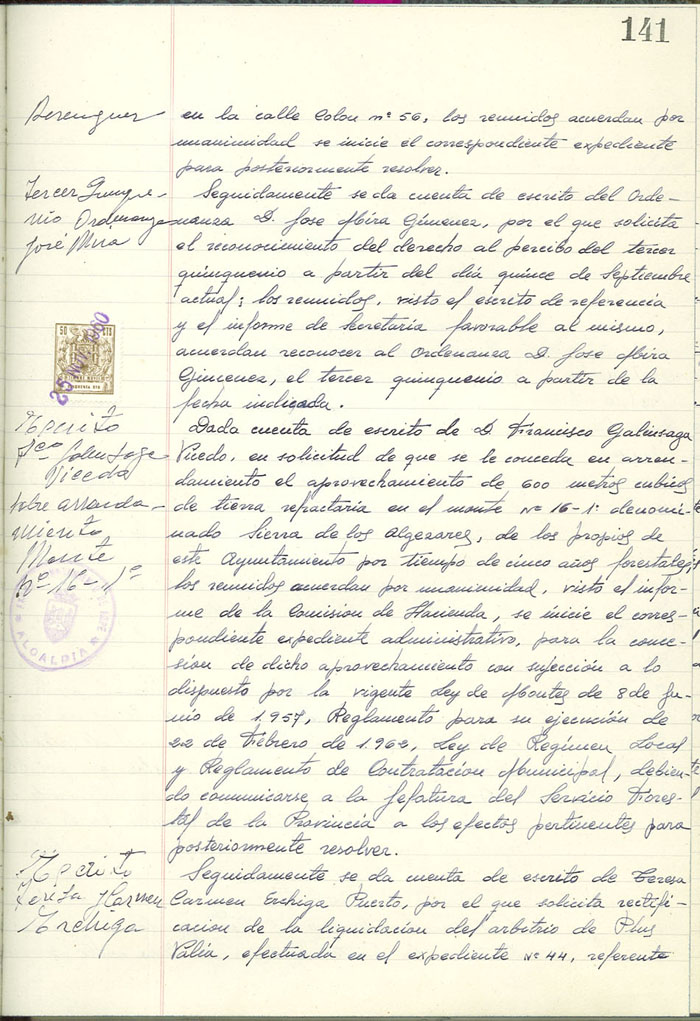 141
Berenguer
en la calle Colon nº 56, los reunidos acuerdan por
unanimidad se inicie el correspondiente expediente
para posteriormente resolver.
Tercer Quinque-
nio Ordenanza
José Mira
Seguidamente se da cuenta de escrito del Orde-
nanza D. Jose Mira Gimenez, por el que solicita
el reconocimiento del derecho al percibo del tercer
quinquenio a partir del día quince de Septiembre
actual; los reunidos, visto el escrito de referencia
y el informe de Secretaría favorable al mismo,
acuerdan reconocer al Ordenanza D. Jose Mira
Gimenez, el tercer quinquenio a partir de la
fecha indicada.
50 CTS
25 NOV. 1960
Escrito
Fco Galinsoga
Picedo
sobre arrenda-
miento
Monte
Nº 16-1º
ALCALDÍA
Dada cuenta de escrito de D. Francisco Galinsoga
Picedo, en solicitud de que se le conceda en arren-
damiento el aprovechamiento de 600 metros cubicos
de tierra refractaria en el monte Nº 16-1º denomi-
nado Sierra de los Algezares, de los propios de
este Ayuntamiento por tiempo de cinco años forestales;
los reunidos acuerdan por unanimidad, visto el infor-
me de la Comision de Hacienda, se inicie el corres-
pondiente expediente administrativo, para la conce-
sión de dicho aprovechamiento con sujección a lo
dispuesto por la vigente Ley de Montes de 8 de Ju-
nio de 1.957, Reglamento para su ejecución de
22 de Febrero de 1.962, Ley de Regimen Local
y Reglamento de Contratación Municipal, debien-
do comunicarse a la Jefatura del Servicio Fores-
tal de la Provincia a los efectos pertinentes para
posteriormente resolver.
Escrito
Teresa Carmen
Erchiga
Seguidamente se da cuenta de escrito de Teresa
Carmen Erchiga Puerto, por el que solicita rectifi-
cacion de la liquidacion del arbitrio de Plus
Valía, efectuada en el expediente Nº 44, referente